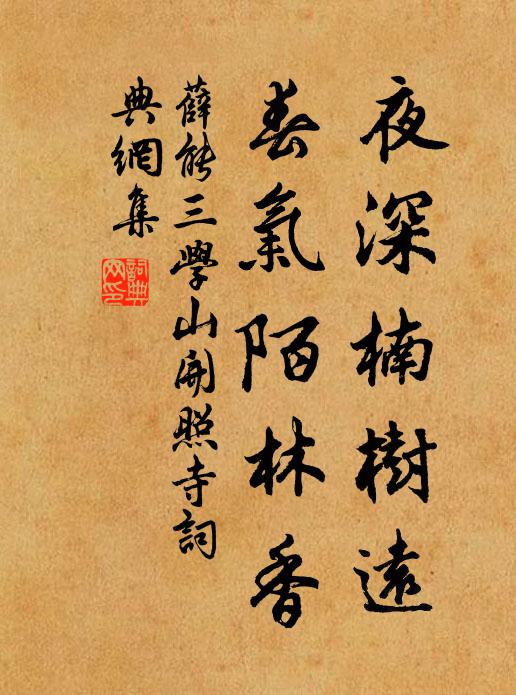 夜深楠樹遠
春氣陌林香
薛能三學山開照寺詞
典網集
詞典
网印